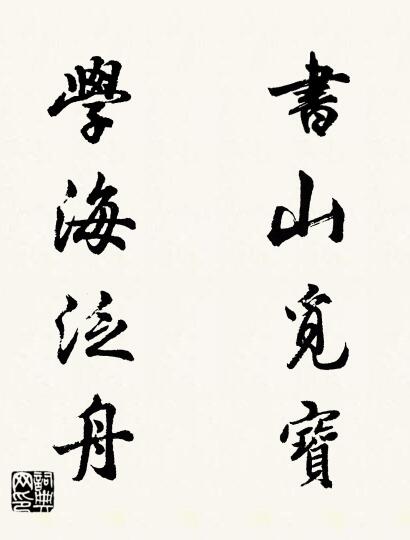 書山覓寶
學海泛舟
詞典網印